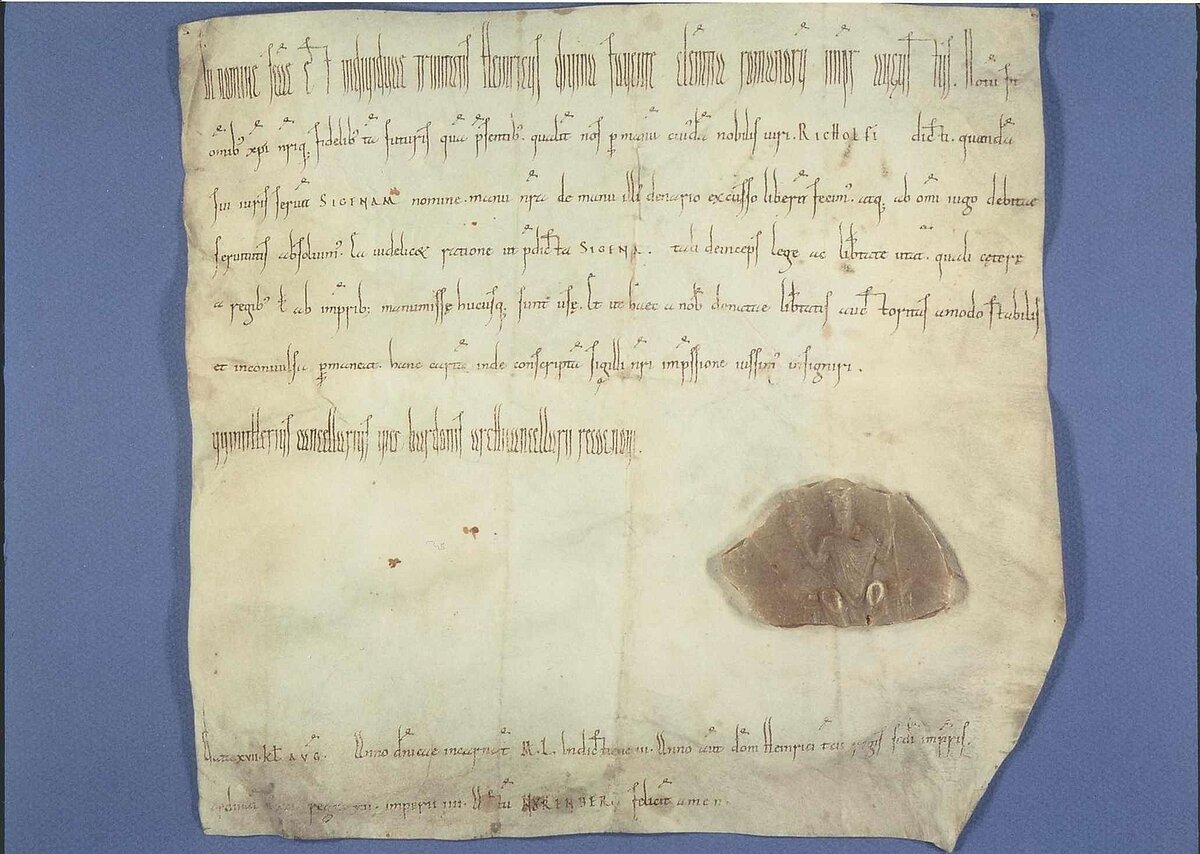 In nomine sc̄ae et individuae trinitatis Heinricus divina favente clementia romanorū imp̄r augustus. Notū sit
om̄ib; xp̄i nr̄iq; fidelib; tā futuris quā p̄sentib; qualit̄ nos p manū cuiusdā nobilis viri. RICHOLFI dicti. quandā
sui iuris servā SIGENAM nomine. manu nr̄a de manu illi' denario excusso liberā fecim'. atq; ab om̄i iugo debitae
servitutis absolvim'. Ea videlicet ratione ut p̄dicta SIGENA. tali deinceps lege ac lib̄tate utat̄. quali cęterę
a regib; vel ab imp̄rib; manumissę hucusq; sunt usę. Et ut haec a nob̄ donatae lib̄tatis auctoritas amodo stabilis
et inconvulsa pmaneat. hanc cartā inde conscriptā sigilli nr̄i imp̄ssione iussim' insigniri.
VVinitherius cancellarius vice bardonis archicancellarii recognovi.
Data XVII. kl. AUG. Anno dn̄icae incarnat̄ M. L. Indictione III. Anno aūt dom̄ Heinrici tercii regis secūdi imp̄ris.
ordinat̄ regn̄ imperii IIII. Actū NŎRENBERG felicit̄ amen.